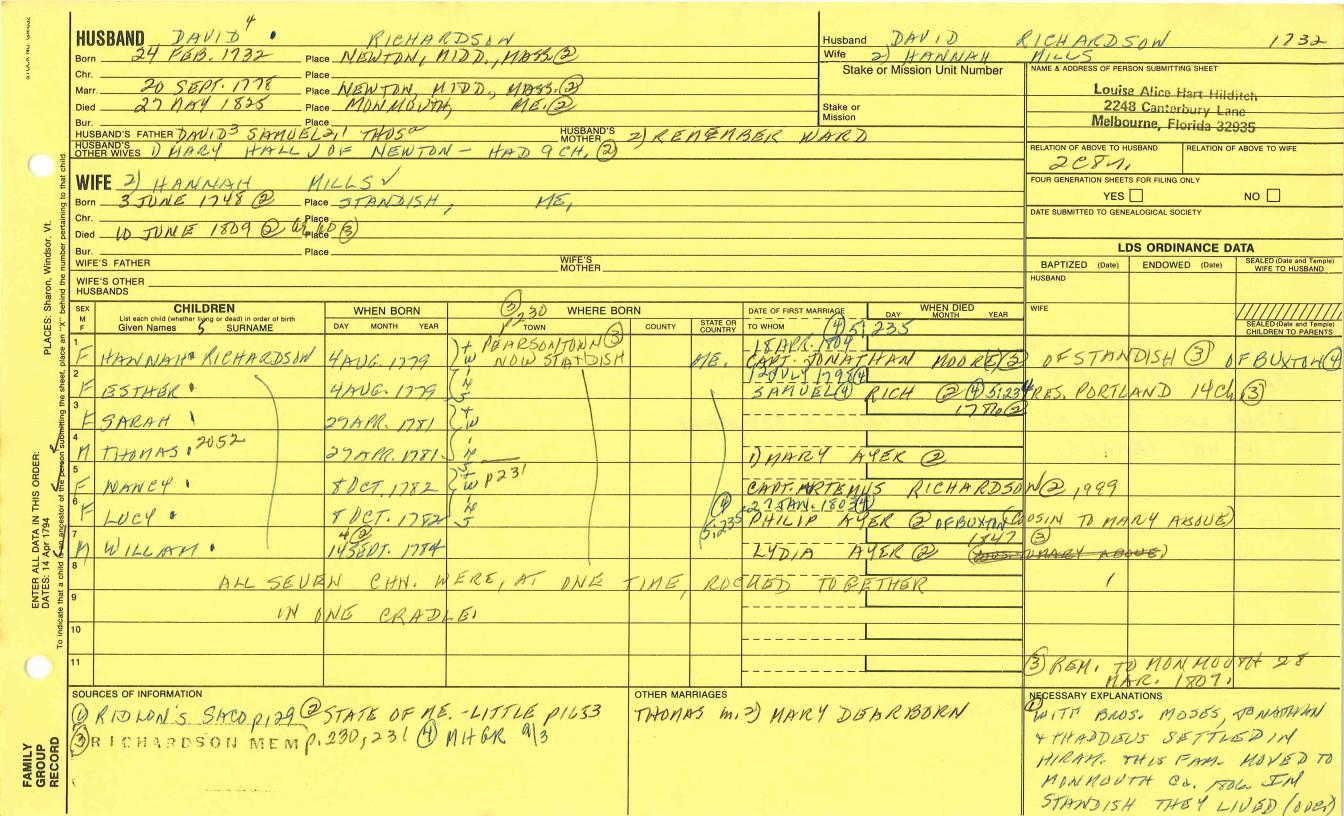 HUSBAND DAVID 4 RICHARDSON
Born 24 FEB. 1732 Place NEWTON, MIDD., MASS. (2)
Chr. Place
Marr. 20 SEPT. 1778 Place NEWTON, MIDD., MASS. (2)
Died 27 MAY 1825 Place MONMOUTH, ME. (2)
Bur. Place
HUSBAND'S FATHER DAVID 3 SAMUEL 2, 1 THOS HUSBAND'S MOTHER 2) REMEMBER WARD
HUSBAND'S OTHER WIVES 1) MARY HALL OF NEWTON - HAD 9 CH. (2)
Husband DAVID RICHARDSON 1732
Wife 2) HANNAH MILLS
Stake or Mission Unit Number
Stake or Mission
NAME & ADDRESS OF PERSON SUBMITTING SHEET
Louise Alice Hart Hilditch
2248 Canterbury Lane
Melbourne, Florida 32935
RELATION OF ABOVE TO HUSBAND RELATION OF ABOVE TO WIFE
FOUR GENERATION SHEETS FOR FILING ONLY
YES NO
DATE SUBMITTED TO GENEALOGICAL SOCIETY
LDS ORDINANCE DATA
BAPTIZED (Date) ENDOWED (Date) SEALED (Date and Temple) WIFE TO HUSBAND
HUSBAND
WIFE
SEALED (Date and Temple) CHILDREN TO PARENTS
WIFE 2) HANNAH MILLS ✓
Born 3 JUNE 1748 (2) Place STANDISH, ME.
Chr. Place
Died 10 JUNE 1809 (2) (3) Place
Bur. Place
WIFE'S FATHER WIFE'S MOTHER
WIFE'S OTHER HUSBANDS
SEX M F CHILDREN WHEN BORN (3) p230 WHERE BORN DATE OF FIRST MARRIAGE WHEN DIED
List each child (whether living or dead) in order of birth
Given Names SURNAME DAY MONTH YEAR TOWN COUNTY STATE OR COUNTRY TO WHOM DAY MONTH YEAR
(4) 5:235
1 F HANNAH RICHARDSON 4 AUG. 1779 PEARSONTOWN (3) NOW STANDISH ME. 18 APR. 1804 CAPT. JONATHAN MOORE (3) OF STANDISH (3) OF BUXTON (4)
2 F ESTHER 4 AUG. 1779 12 JULY 1798 (4) SAMUEL (4) RICH (2) (4) 5:234 RES. PORTLAND 14 Ch. (3)
3 F SARAH 27 APR. 1781 (2)
4 M THOMAS 2052 27 APR. 1781 1) MARY AYER (2)
5 F NANCY 8 OCT. 1782 p231 CAPT. ARTEMUS RICHARDSON (2) 1999
6 F LUCY 8 OCT. 1782 (4) 5:235 27 JAN. 1803 (4) PHILIP AYER (2) OF BUXTON (COUSIN TO MARY ABOVE)
7 M WILLIAM 14 SEPT. 1784 LYDIA AYER (2) 1847 (3)
8 ALL SEVEN CHN. WERE, AT ONE TIME, ROCKED TOGETHER
9 IN ONE CRADLE!
10
11
(3) REM. TO MONMOUTH 28 MAR. 1807.
SOURCES OF INFORMATION
(1) RIDLON'S SACO p. 129 (2) STATE OF ME. - LITTLE p1653
(3) RICHARDSON MEM p. 230, 231 (4) MHGR 9/3
OTHER MARRIAGES
THOMAS m. 2) MARY DEARBORN
NECESSARY EXPLANATIONS
(1) WITH BROS. MOSES, JONATHAN
& THADDEUS SETTLED IN
HIRAM. THIS FAM. MOVED TO
MONMOUTH Co. 1806. IN
STANDISH THEY LIVED (OVER)
PLACES: Sharon, Windsor, Vt.
ENTER ALL DATA IN THIS ORDER:
DATES: 14 Apr 1794
To indicate that a child is an ancestor of the person submitting the sheet, place an "X" behind the number pertaining to that child.
FAMILY GROUP RECORD